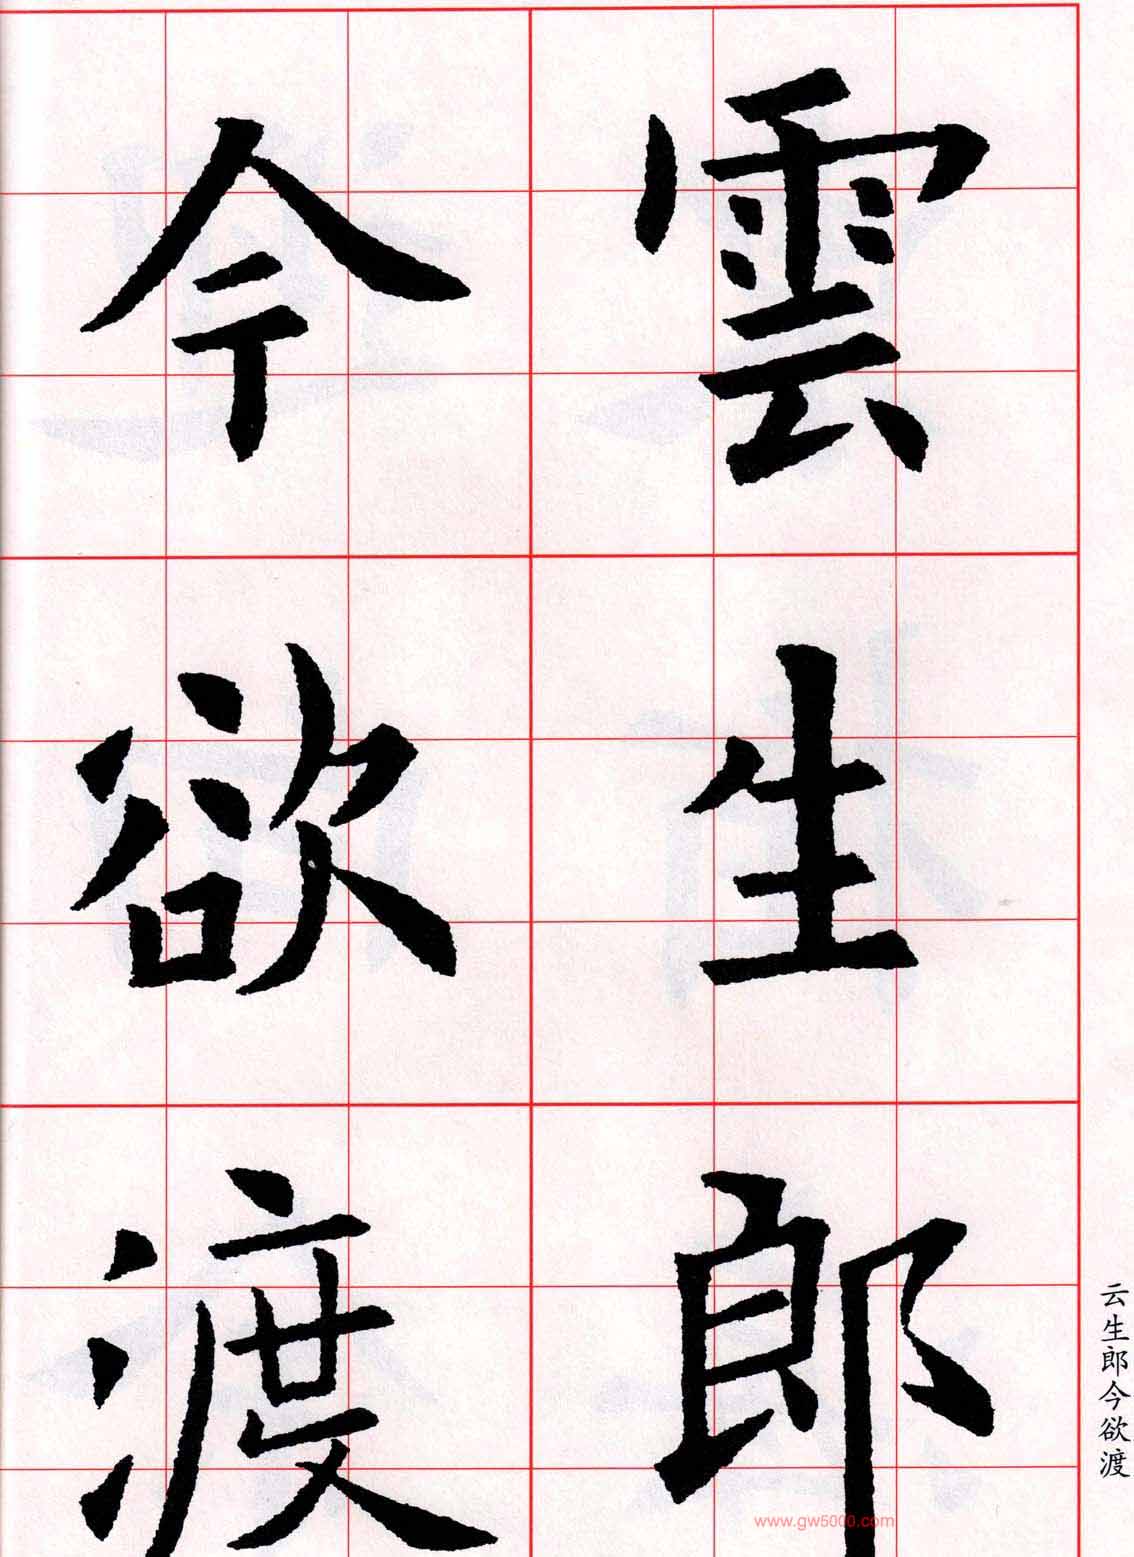 雲生郎
今欲渡
云生郎今欲渡
www.gw5000.com